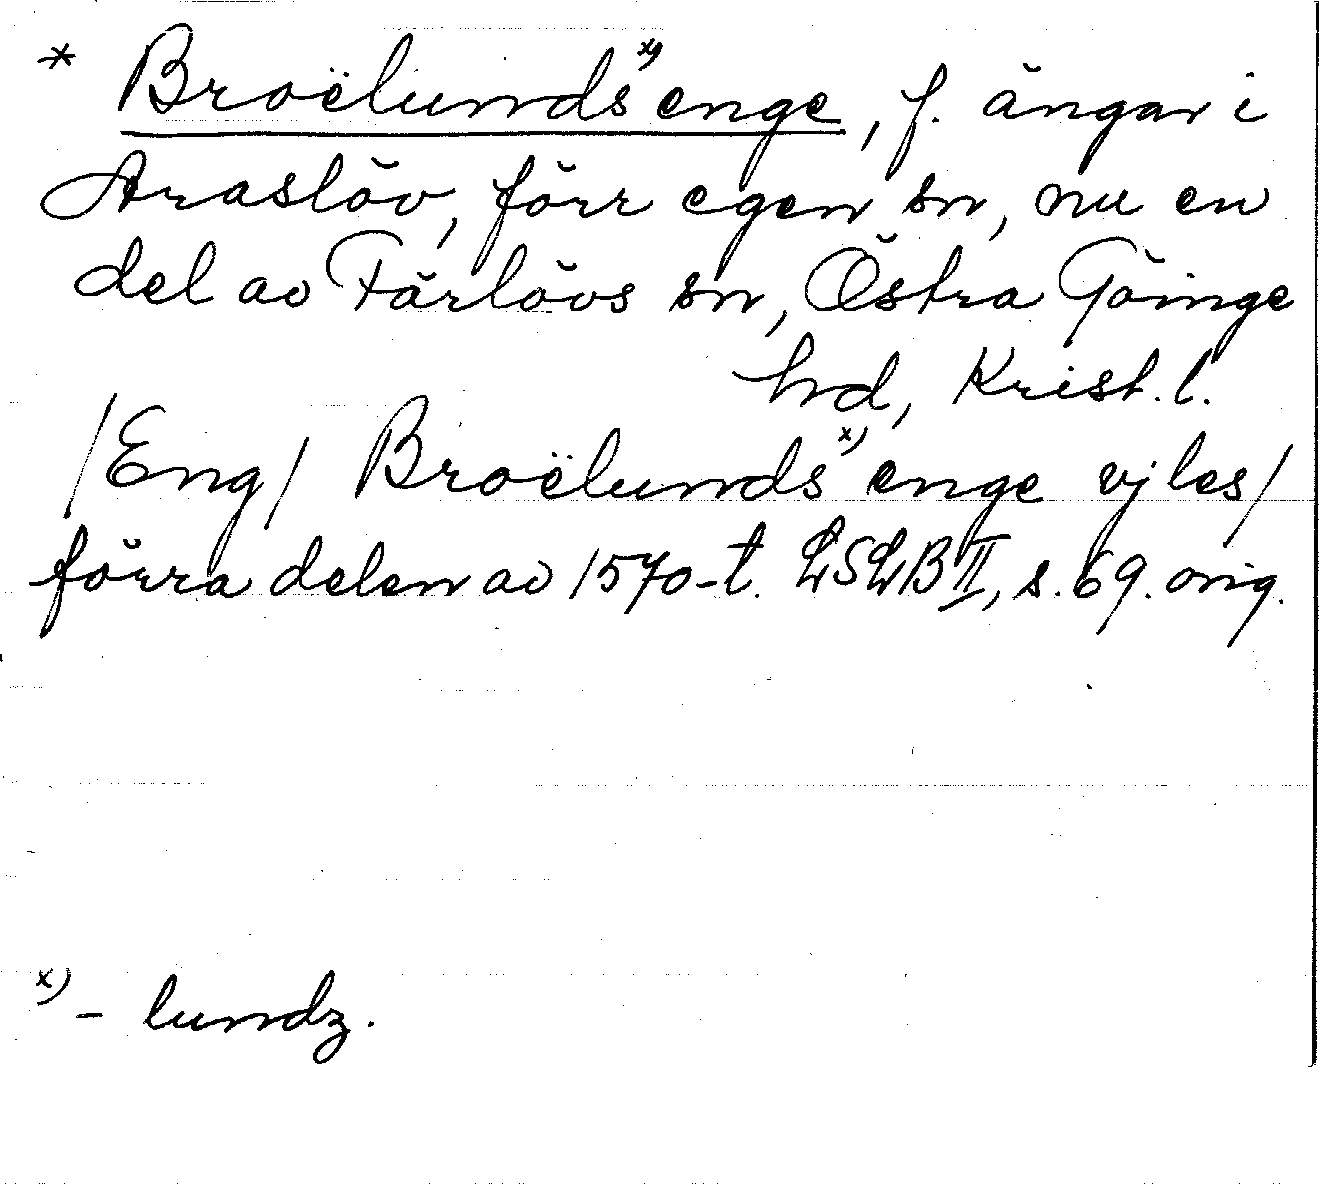 * Broëlunds x) enge, f. ängar i
Araslöv, förr egen sn, nu en
del av Färlövs sn, Östra Göinge
hd, Krist. l.
/Eng/ Broëlunds x) enge vjles/
förra delen av 1570-t. LSLB II, s. 69. orig.
x) - lundz.